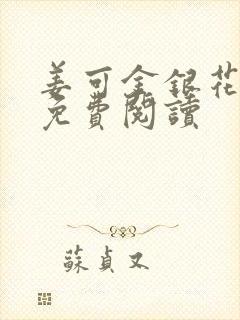 姜可金銀花
免費閱讀
蘇貞又